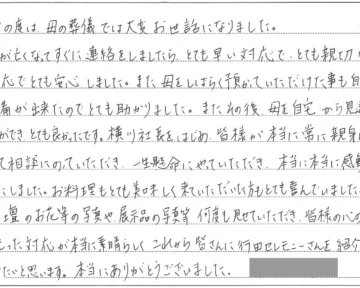 の度は、母の葬儀では大変お世話になりました。
が亡くなてすぐに連絡をしましたら、とても早い対応で、とても親切
応でとても安心しました。また、母をしばらく預かっていただけた事も自
備が出来たのでとても助かりました。またその後、母を自宅から見送
ができとても良かったです。横川社長をはじめ、皆様が本当に常に親身
て相談にのっていただき、一生懸命にやっていただき、本当に本当に感動
にしました。お料理もとても美味しく来ていただいた方もとても喜んでいました
壇のお花等の写真や、展示品の写真等、何度も見せていただき、皆様の心の
った対応が本当に素晴らしく、これから皆さんに行田セレモニーさんを紹介
たいと思います。本当にありがとうございました。